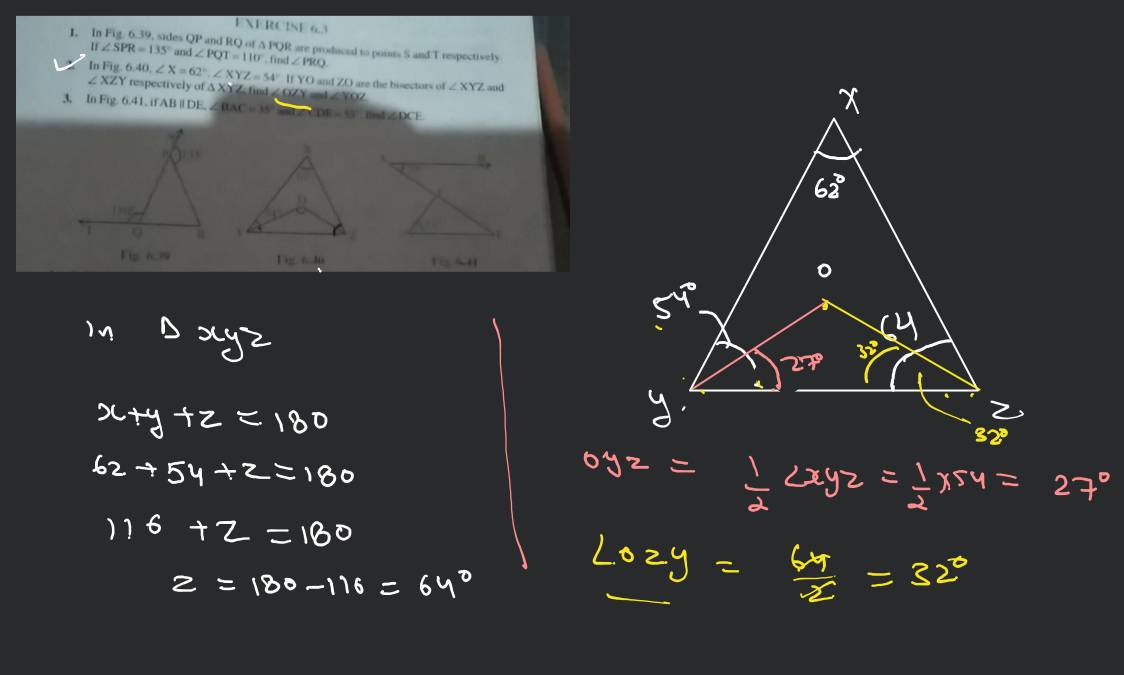 EXERCISE 6.3
1. In Fig. 6.39, sides QP and RQ of Δ PQR are produced to points S and T respectively.
If ∠ SPR = 135° and ∠ PQT = 110°, find ∠ PRQ.
2. In Fig. 6.40, ∠ X = 62°, ∠ XYZ = 54°. If YO and ZO are the bisectors of ∠ XYZ and
∠ XZY respectively of Δ XYZ, find ∠ OZY and ∠ YOZ.
3. In Fig. 6.41, if AB || DE, ∠ BAC = 35° and ∠ CDE = 53°, find ∠ DCE.
Fig. 6.39
Fig. 6.40
Fig. 6.41
X
62°
O
54°
64
32°
27°
Y
Z
32°
In Δ xyz
x+y+z = 180
62+54+z=180
116 +z =180
z = 180-116 = 64°
oyz = 1/2 ∠xyz = 1/2 x54 = 27°
∠ozy = 64/2 = 32°